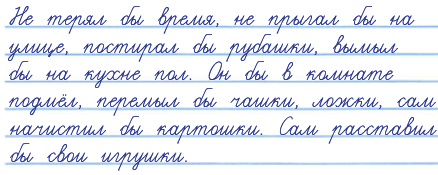 Не терял бы время, не прыгал бы на
улице, постирал бы рубашки, вымыл
бы на кухне пол. Он бы в комнате
подмёл, перемыл бы чашки, ложки, сам
начистил бы картошки. Сам расставил
бы свои игрушки.